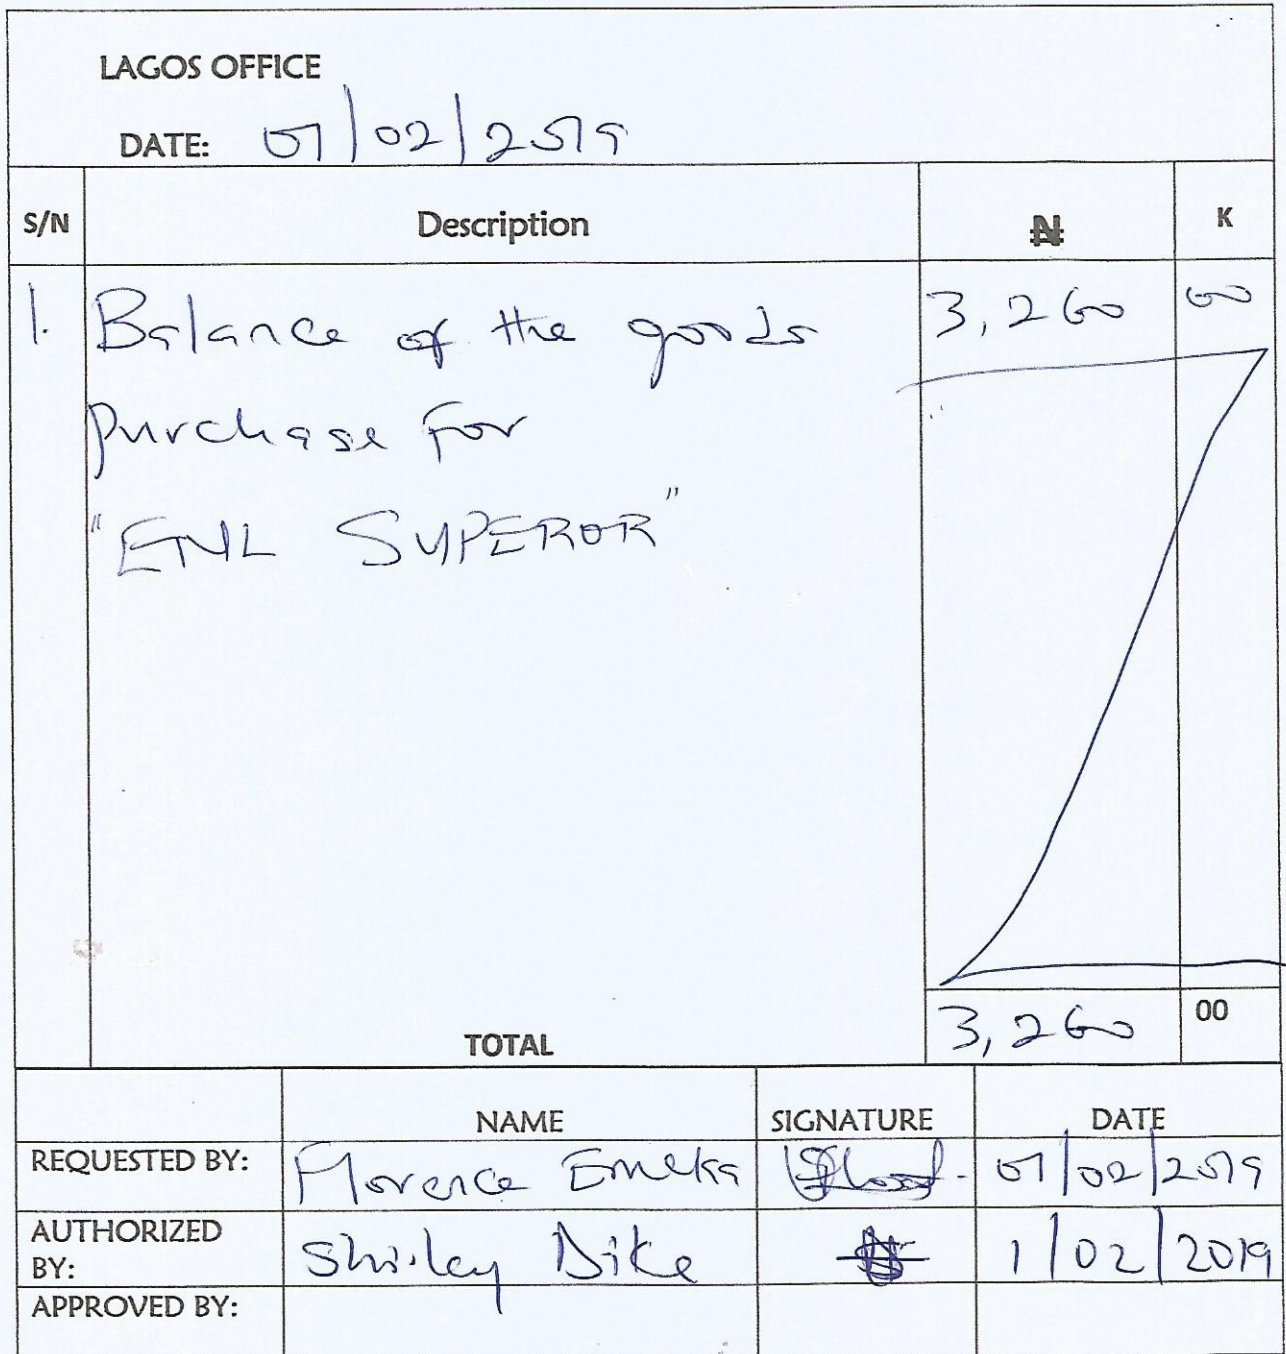 LAGOS OFFICE
DATE: 01/02/2019
S/N Description ₦ K
1. Balance of the goods 3,260 00
purchase for
"ENL SUPEROR"
TOTAL 3,260 00
NAME SIGNATURE DATE
REQUESTED BY: Florence Emeka 01/02/2019
AUTHORIZED
BY: Shirley Dike 1/02/2019
APPROVED BY: